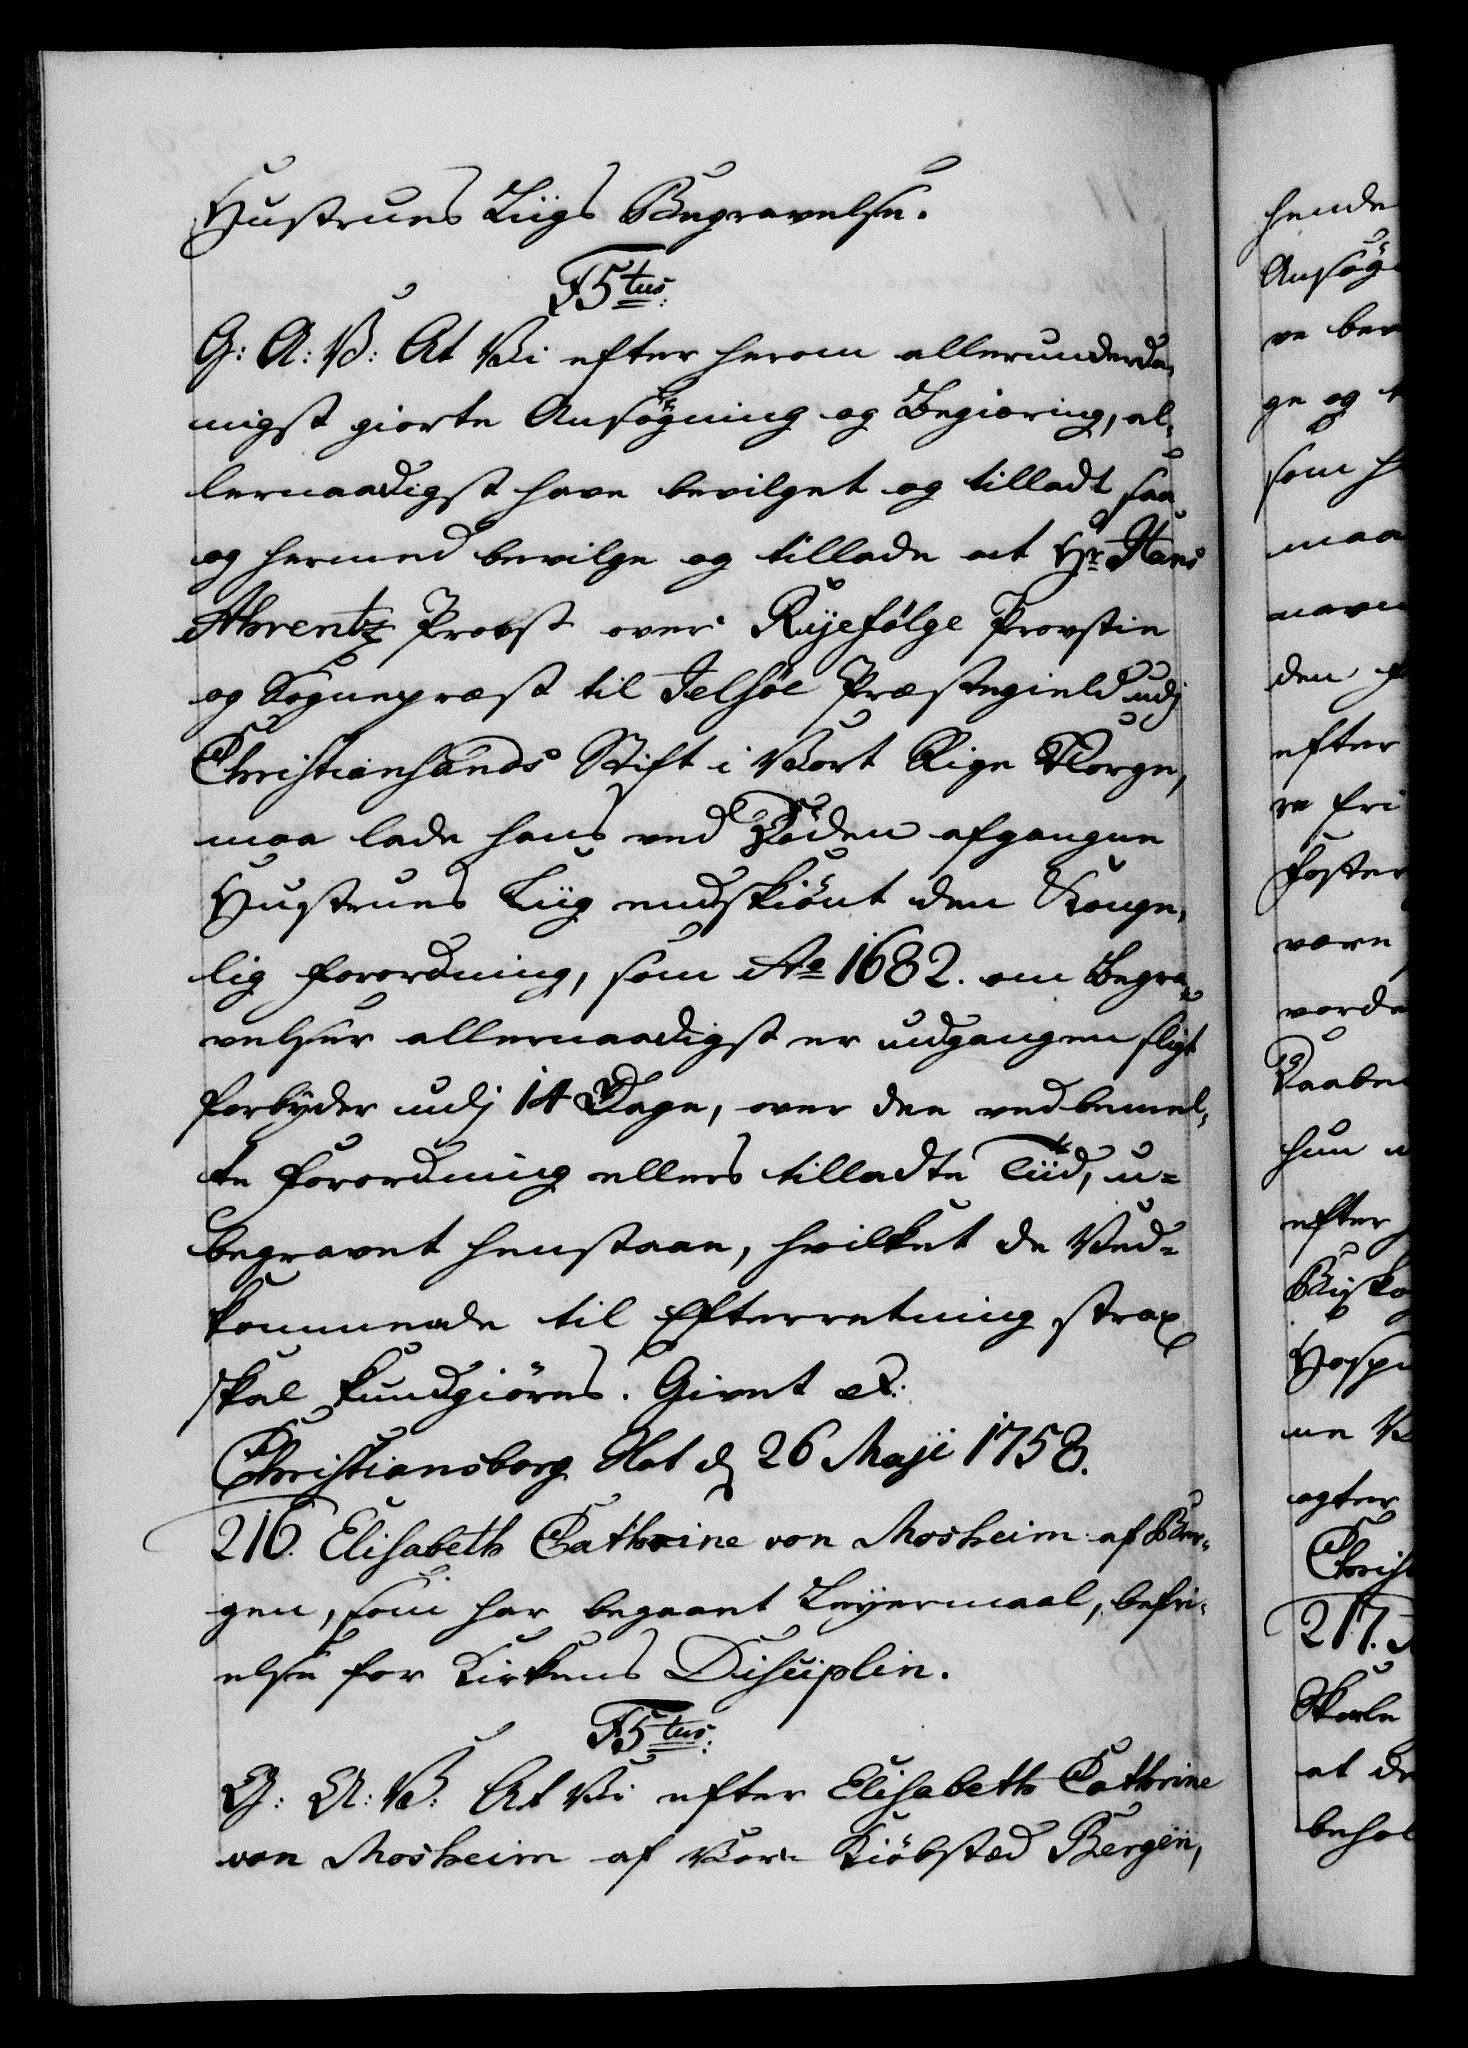 Hustrues Liigs Begravelse.
F5tus:
G: A: V: At Vii efter herom allerunderda,
nigst giorte Ansøgning og Begiæring, al,
lernaadigst have bevilget og tilladt saa
og hermed bevilge og tillade at Hr Hans
Ahrentz Probst over Ryefølge Provstie
og Sognepræst til Jelsøe Præstegield udj
Christiansands Stift i Vort Rige Norge,
maa lade hans ved Døden afgangne
Hustrues Liig endskiönt den Konge,
lig Forordning, som Ao 1682. om Begra,
velser allernaadigst er udgangen sligt
forbyder udj 14 Dage, over den ved bemel,
te Forordning ellers tilladte Tiid, u=
begravet henstaae, hvilket de Ved=
kommende til Efterretning strax
skal kundgiöres. Givet etc:
Christiansborg Slot d. 26 Maji 1758.
216. Elisabeth Cathrine von Mosheim af Ber,
gen, som har begaaet Leyermaal, befri,
else for Kirkens Disciplin.
F5tus:
G: A: V: At Vii efter Elisabeth Cathrine
von Mosheim af Vor Kiöbsted Bergen,
hende
Ansøg
ve be
ge og
som h
maa
navn
den
efter
re fri
Foster
være
vorde
Daabe
hun
efter
Biskop
Hospi
en
agter
Christ
217.
Skarle
at de
behol